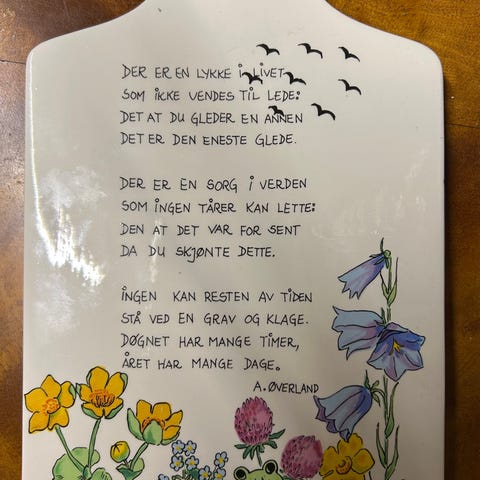 DER ER EN LYKKE I LIVET
SOM IKKE VENDES TIL LEDE:
DET AT DU GLEDER EN ANNEN
DET ER DEN ENESTE GLEDE.

DER ER EN SORG I VERDEN
SOM INGEN TÅRER KAN LETTE:
DEN AT DET VAR FOR SENT
DA DU SKJØNTE DETTE.

INGEN KAN RESTEN AV TIDEN
STÅ VED EN GRAV OG KLAGE.
DØGNET HAR MANGE TIMER,
ÅRET HAR MANGE DAGE.
A. ØVERLAND